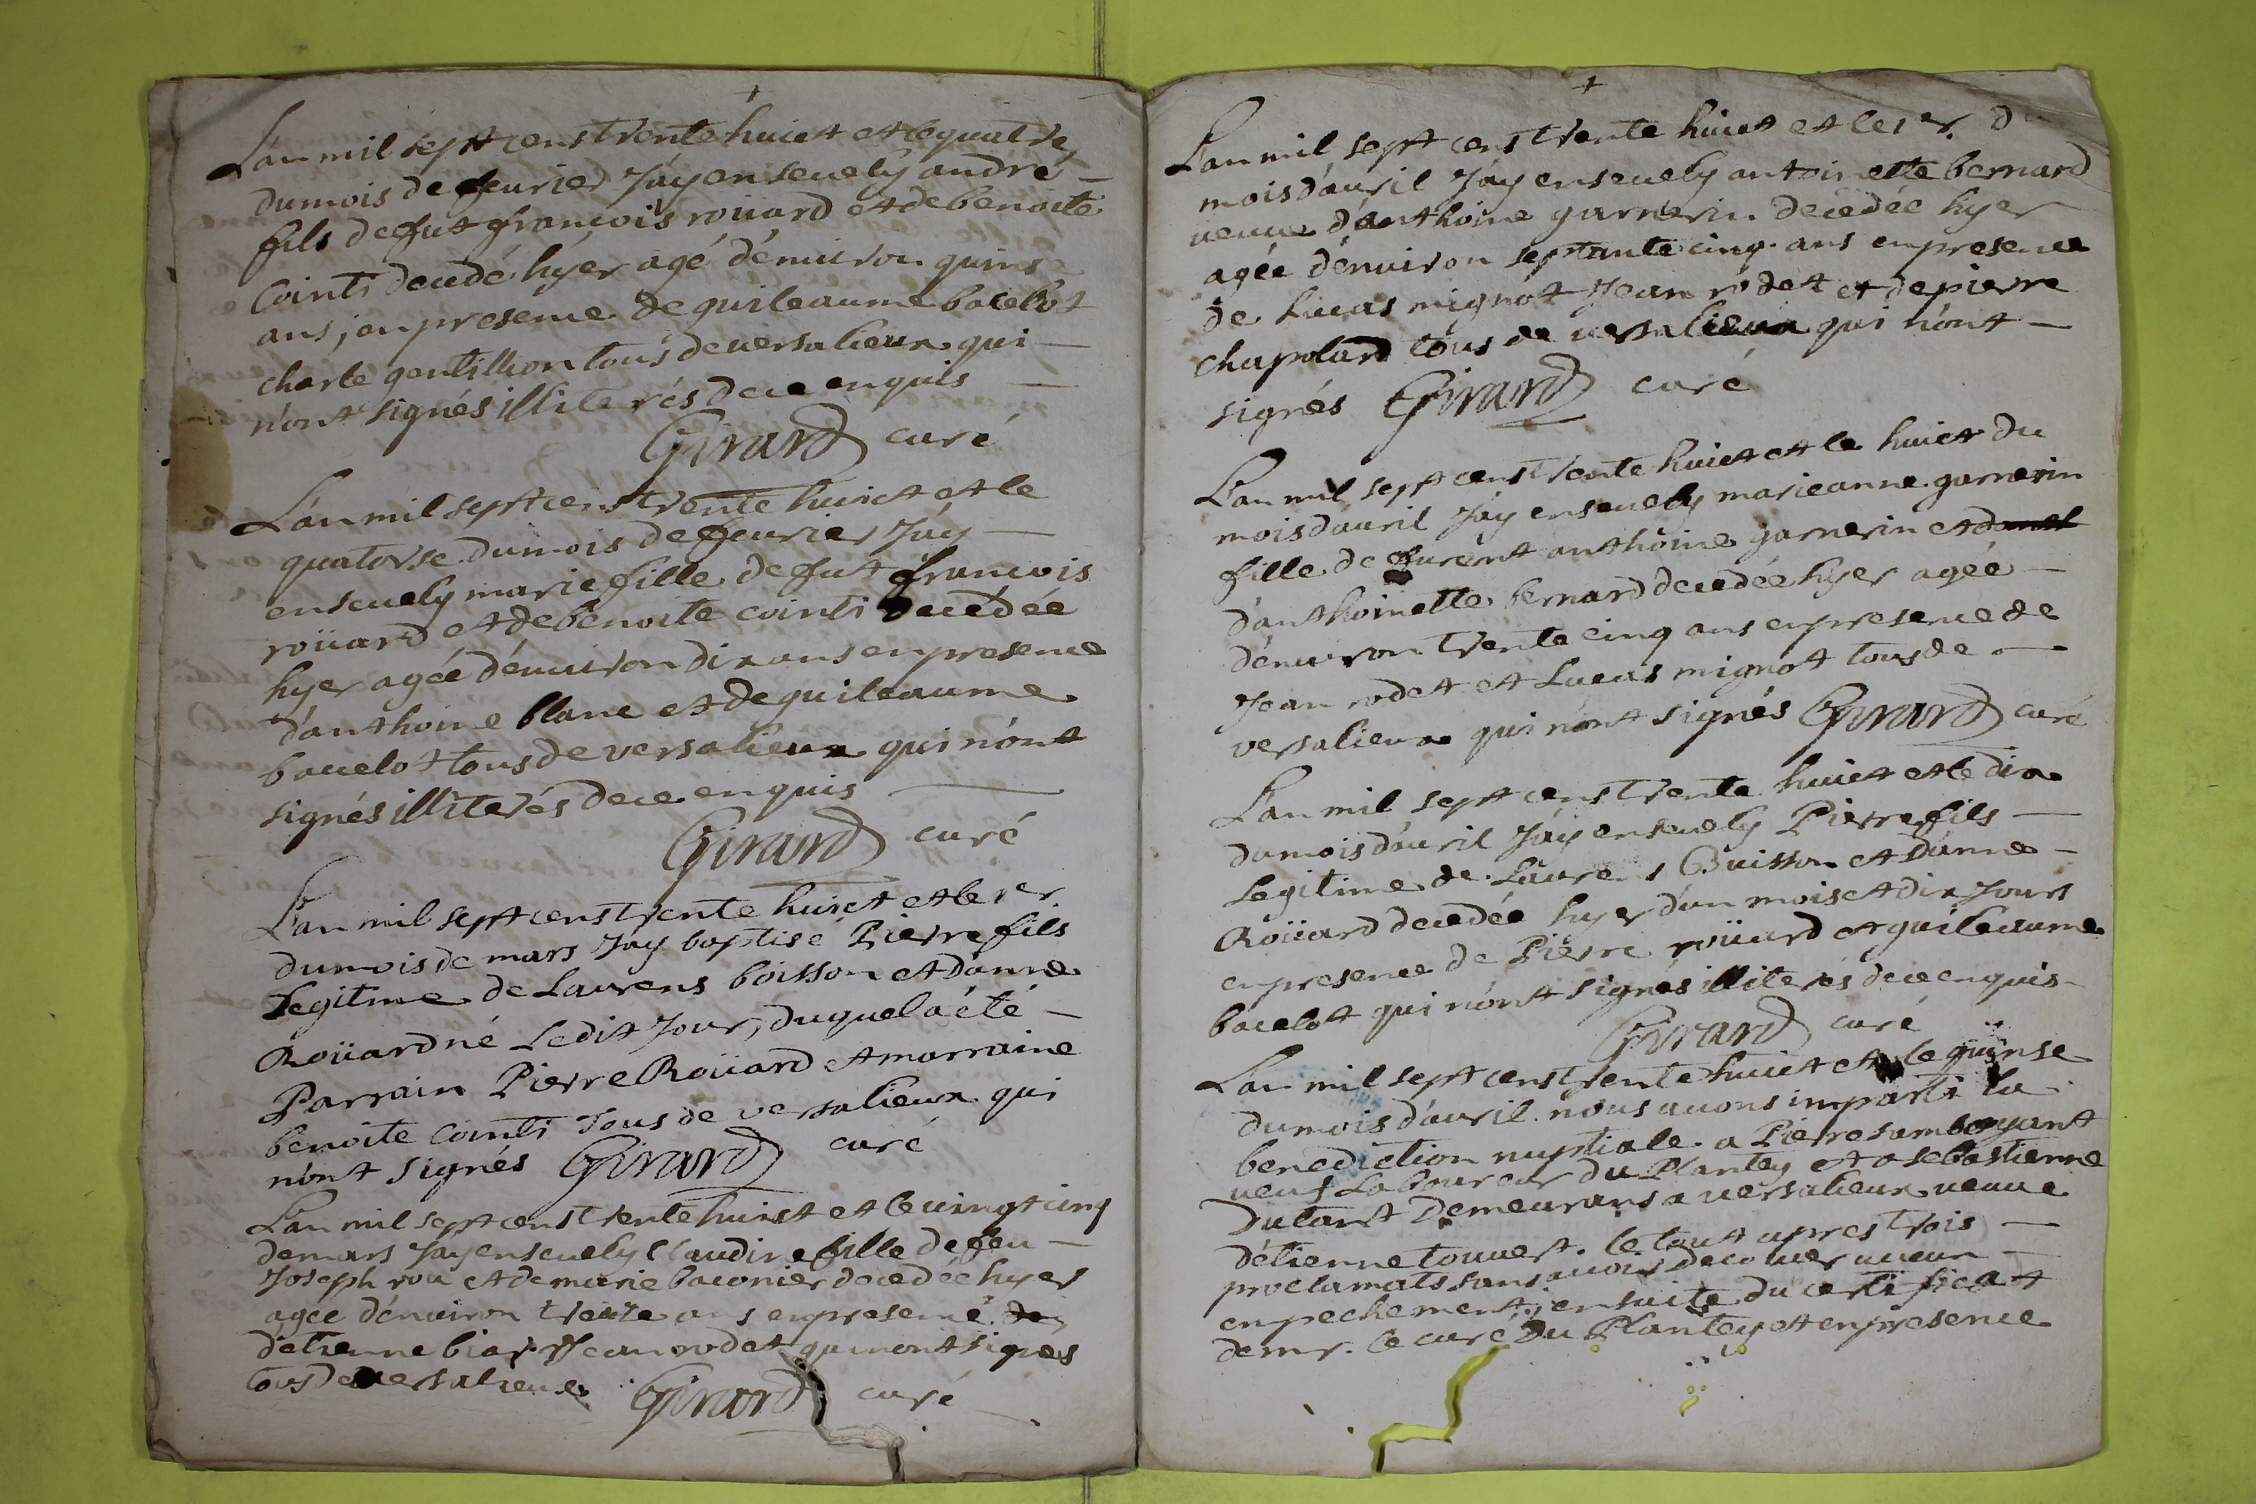 +
L'an mil sept cens trente huict et le quatre
du mois de feurier J'ay enseuely andré
fils de fut françois roüard et de benoite
Cointi decedé hyer agé d'enuiron quinse
ans, en presence de guileaume bacelot
charle gentilhon tous de uersalieux qui
n'ont signés illiterés de ce enquis
Girard curé
L'an mil sept cens trente huict et le
quatorse du mois de feurier J'ay
enseuely marie fille de fut françois
roüard et de benoite cointi decedée
hyer agée d'enuiron dix ans en presence
d'anthoine blanc et de guileaume
bacelot tous de versalieux qui n'ont
signés illiterés de ce enquis
Girard curé
L'an mil sept cens trente huict et le 1er.
du mois de mars J'ay baptisé Pierre fils
Legitime de Laurens boisson et d'anne
Roüard né Ledit Jour, duquel a été
Parrain Pierre Roüard et marraine
benoite Cointi Tous de versalieux qui
n'ont signés Girard curé
L'an mil sept cens trente huict et le uingt cinq
de mars J'ay enseuely Claudine fille de feu
Joseph rou et de marie baconier decedée hyer
agée d'enuiron treize ans en presence
d'etienne biar Jean rodet qui n'ont signes
tous de uersalieux Girard curé
+
L'an mil sept cens trente huict et le 1er. du
mois d'auril J'ay enseuely antoinette bernard
ueuue d'anthoine garnerin decedée hyer
agée d'enuiron septante cinq ans en presence
de Lucas mignot Jean rodet et de pierre
chapolard tous de uersalieux qui n'ont
signés Girard curé
L'an mil sept cens trente huict et le huict du
mois d'auril J'ay enseuely marieanne garnerin
fille de furent anthoine garnerin et
d'anthoinette bernard decedée hyer agée
d'enuiron trente cinq ans en presence de
Jean rodet et Lucas mignot tous de
versalieux qui n'ont signés Girard curé
L'an mil sept cens trente huict et le dix
du mois d'auril J'ay enseuely Pierre fils
Legitime de Laurens Buisson et d'anne
Roüard decedée hyer d'un mois et dix Jours
en presence de Pierre roüard et guileaume
bacelot qui n'ont signés illiterés de ce enquis
Girard curé
L'an mil sept cens trente huict et le quinse
du mois d'auril nous auons imparti la
benediction nuptiale a Pierre samboyant
ueuf Laboureur du Plantey et a sebastienne
dutant Demeurans a uersalieux ueuue
d'etienne touuest. le tout apres trois
proclamats sans auoir decouuer aucun
enpechement; ensuite du certificat
de mr. le curé du Plantey et en presence